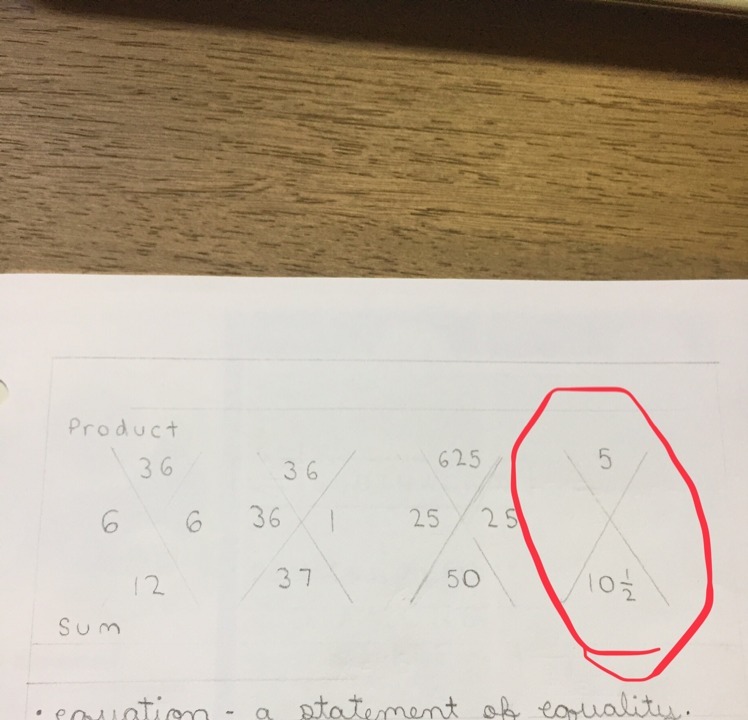 Product
36 36 625 5
6 6 36 1 25 25
12 37 50 10½
Sum
• equation - a statement of equality.